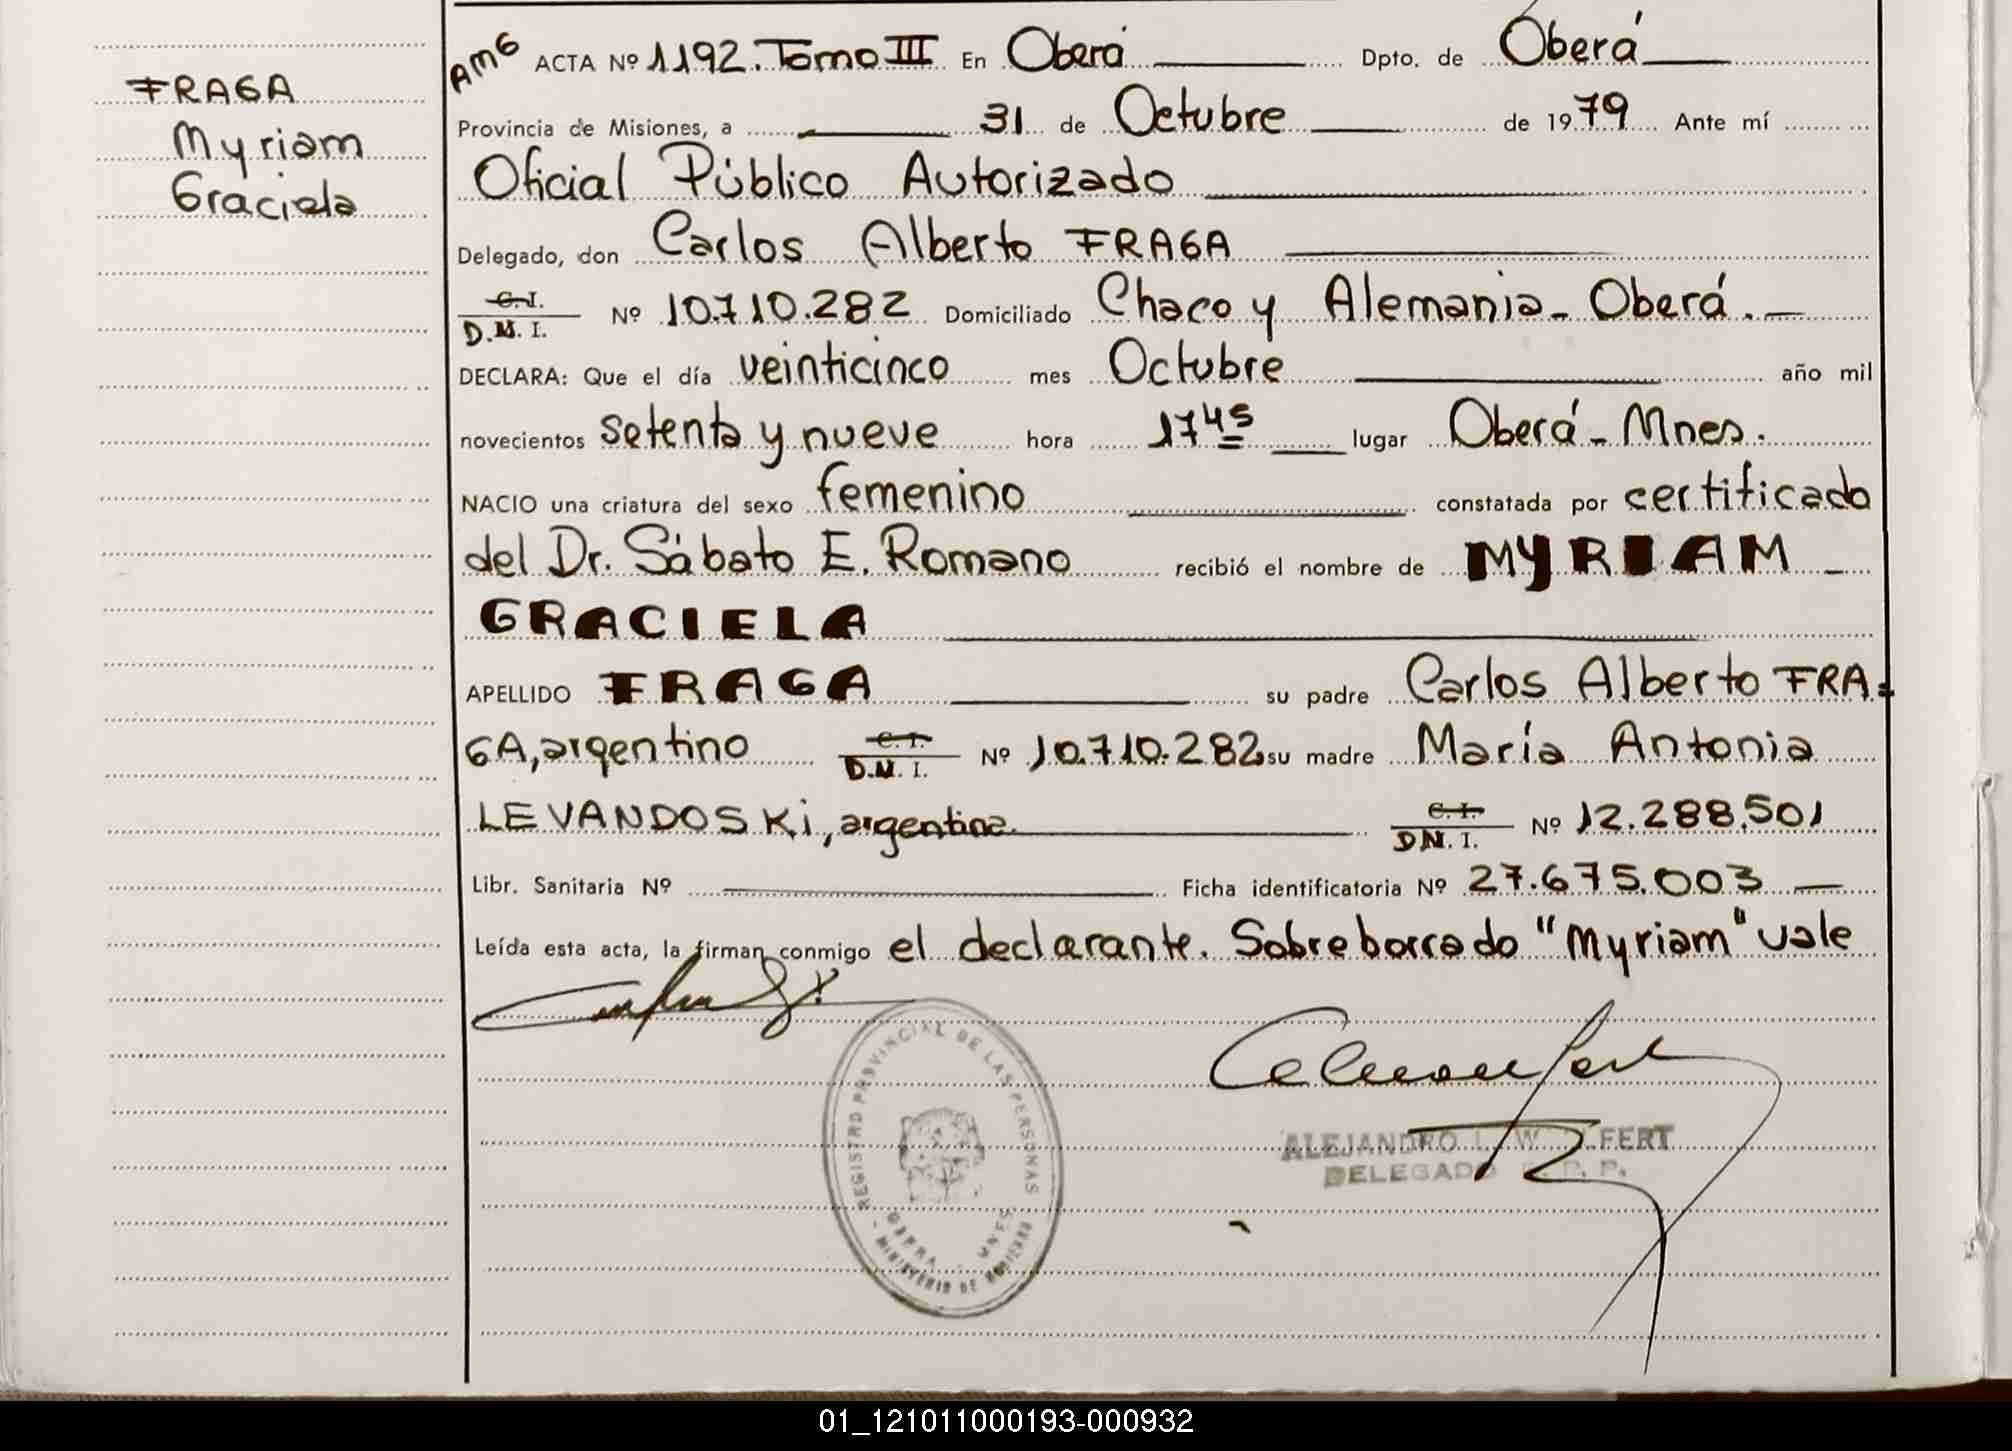 FRAGA
Myriam
Graciela
AMG ACTA Nº 1192. Tomo III En Oberá Dpto. de Oberá
Provincia de Misiones, a 31 de Octubre de 1979 Ante mí
Oficial Público Autorizado
Delegado, don Carlos Alberto FRAGA
C.I.
D.N.I. Nº 10.710.282 Domiciliado Chaco y Alemania - Oberá.-
DECLARA: Que el día veinticinco mes Octubre año mil
novecientos setenta y nueve hora 17 45 lugar Oberá - Mnes.
NACIO una criatura del sexo femenino constatada por certificado
del Dr. Sábato E. Romano recibió el nombre de MYRIAM
GRACIELA
APELLIDO FRAGA su padre Carlos Alberto FRA=
GA, argentino C.I. D.N.I. Nº 10.710.282 su madre María Antonia
LEVANDOSKi, argentina. C.I. D.N.I. Nº 12.288.501
Libr. Sanitaria Nº Ficha identificatoria Nº 27.675.003 —
Leída esta acta, la firman conmigo el declarante. Sobreborrado "Myriam" vale
REGISTRO PROVINCIAL DE LAS PERSONAS
OBERA - MNES
- MINISTERIO DE GOBIERNO
ALEJANDRO FERT
DELEGADO R. P. P.
01_121011000193-000932